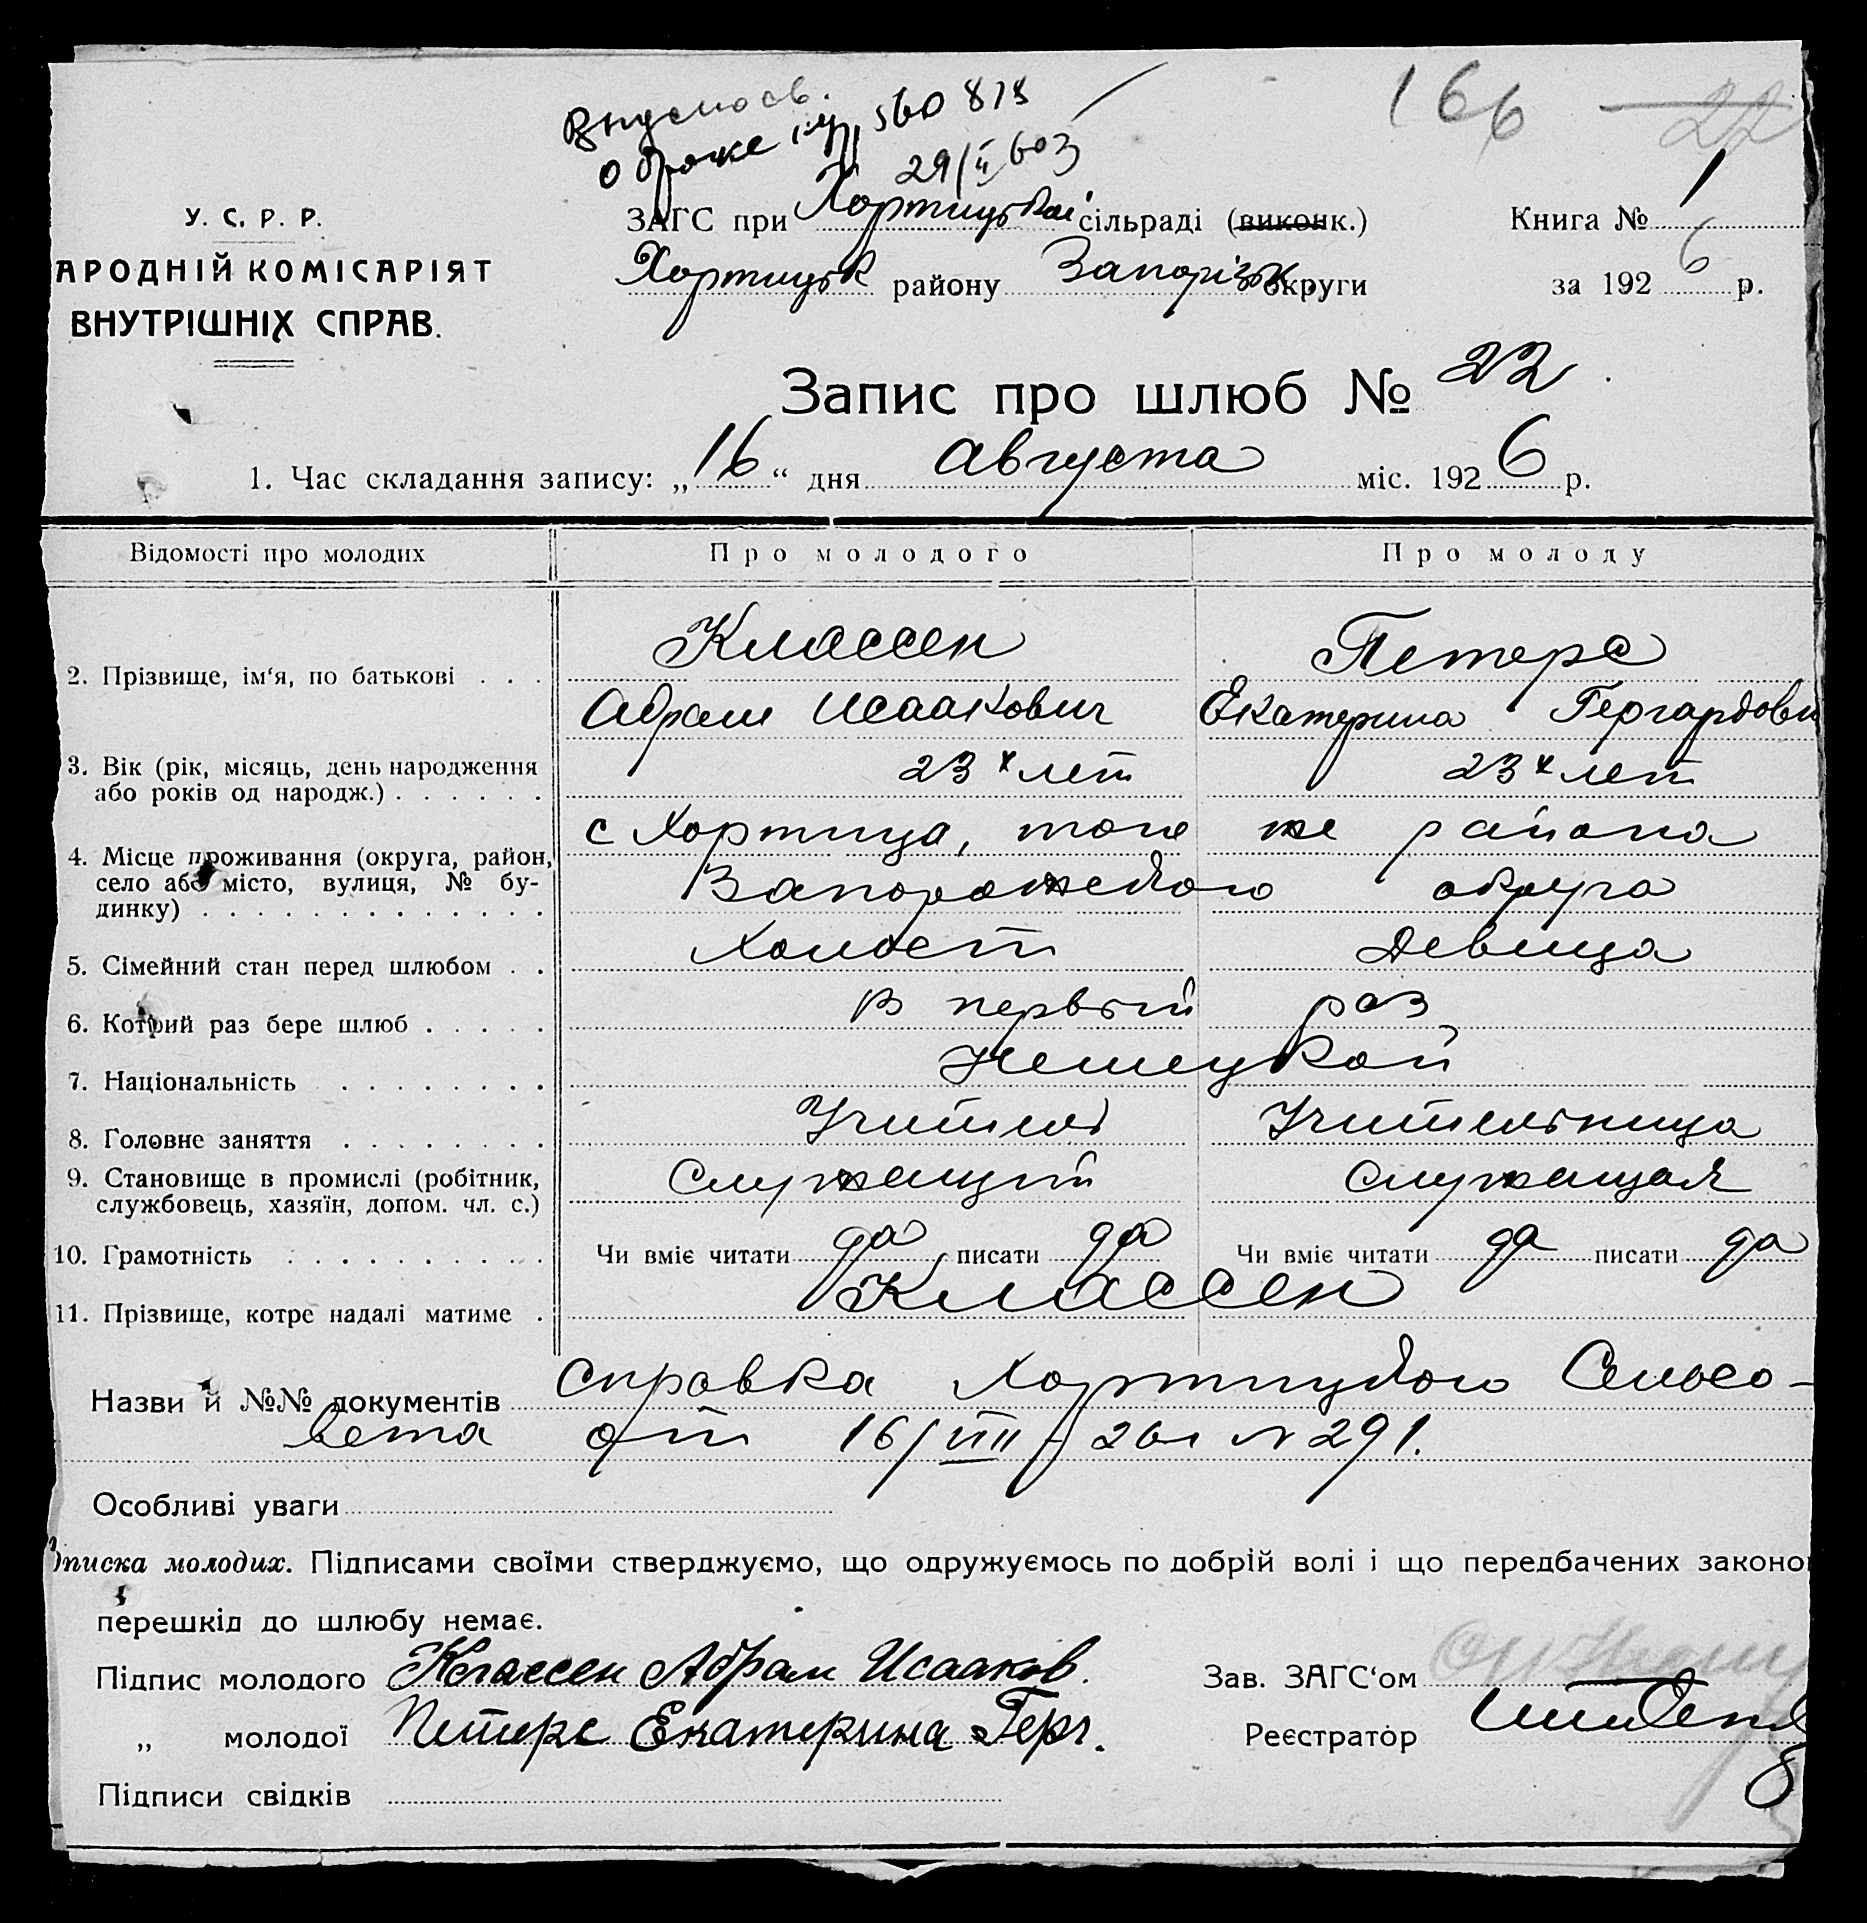 166 22
о браке 560 878
29/II 603
У. С. Р. Р.
АРОДНІЙ КОМІСАРІЯТ
ВНУТРІШНІХ СПРАВ.
ЗАГС при Хортицькой сільраді (виконк.)
Хортицьк району Запорізьк округи
Книга № 1
за 1926 р.
Запис про шлюб № 22
1. Час складання запису: „16“ дня августа міс. 1926 р.
Відомості про молодих Про молодого Про молоду
2. Прізвище, ім‘я, по батькові . . . Классен Петерс
Абрам Исаакович Екатерина Гергардовн
3. Вік (рік, місяць, день народження
або років од народж.) . . . . . . 23х лет 23х лет
4. Місце проживання (округа, район,
село або місто, вулиця, № бу-
динку) . . . . . . . . . . . . . .
с Хортица, того же района
Запорожского округа
5. Сімейний стан перед шлюбом . . Холост Девица
6. Котрий раз бере шлюб . . . . . В первый раз
7. Національність . . . . . . . . Немецкой
8. Головне заняття . . . . . . . . Учитель Учительница
9. Становище в промислі (робітник,
службовець, хазяїн, допом. чл. с.) Служащий Служащая
10. Грамотність . . . . . . . . . . Чи вміє читати да писати да Чи вміє читати да писати да
11. Прізвище, котре надалі матиме . Классен
Назви й №№ документів Справка Хортицкого Сельсо-
вета от 16/VIII-26г № 291.
Особливі уваги
писка молодих. Підписами своїми стверджуємо, що одружуємось по добрій волі і що передбачених законо
перешкід до шлюбу немає.
Підпис молодого Классен Абрам Исааков.
„ молодої Петерс Екатерина Герг.
Підписи свідків
Зав. ЗАГС‘ом
Реєстратор